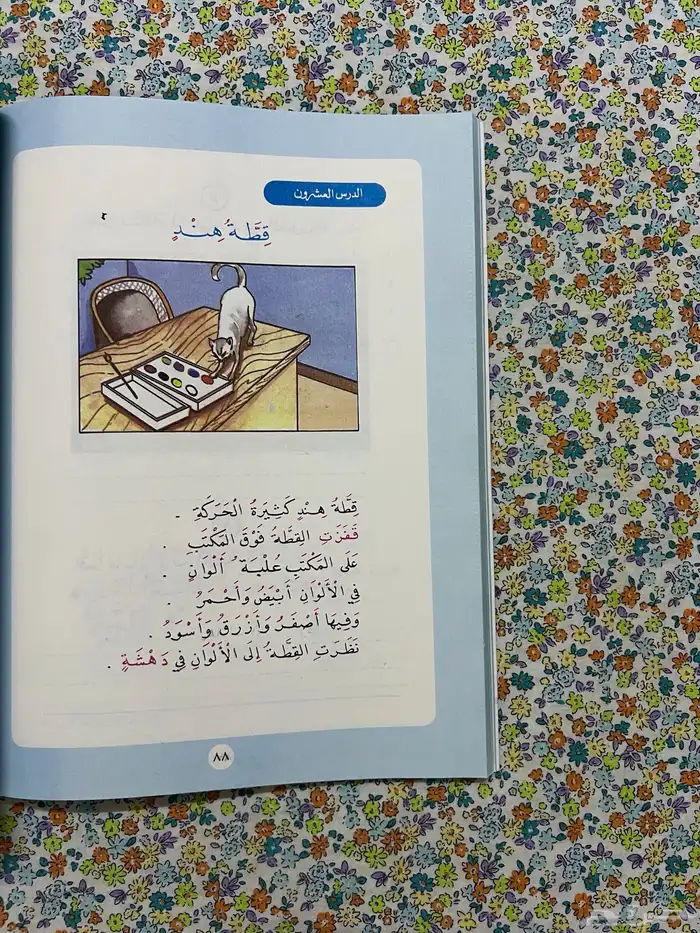 الدرس العشرون
قِطَّةُ هِنْدٍ
قِطَّةُ هِنْدٍ كَثِيرَةُ الْحَرَكَةِ .
قَفَزَتِ القِطَّةُ فَوْقَ المَكْتَبِ .
عَلَى المَكْتَبِ عُلْبَةُ أَلْوَانٍ .
فِي الْأَلْوَانِ أَبْيَضُ وَأَحْمَرُ .
وَفِيهَا أَصْفَرُ وَأَزْرَقُ وَأَسْوَدُ .
نَظَرَتِ القِطَّةُ إِلَى الْأَلْوَانِ فِي دَهْشَةٍ .
٨٨